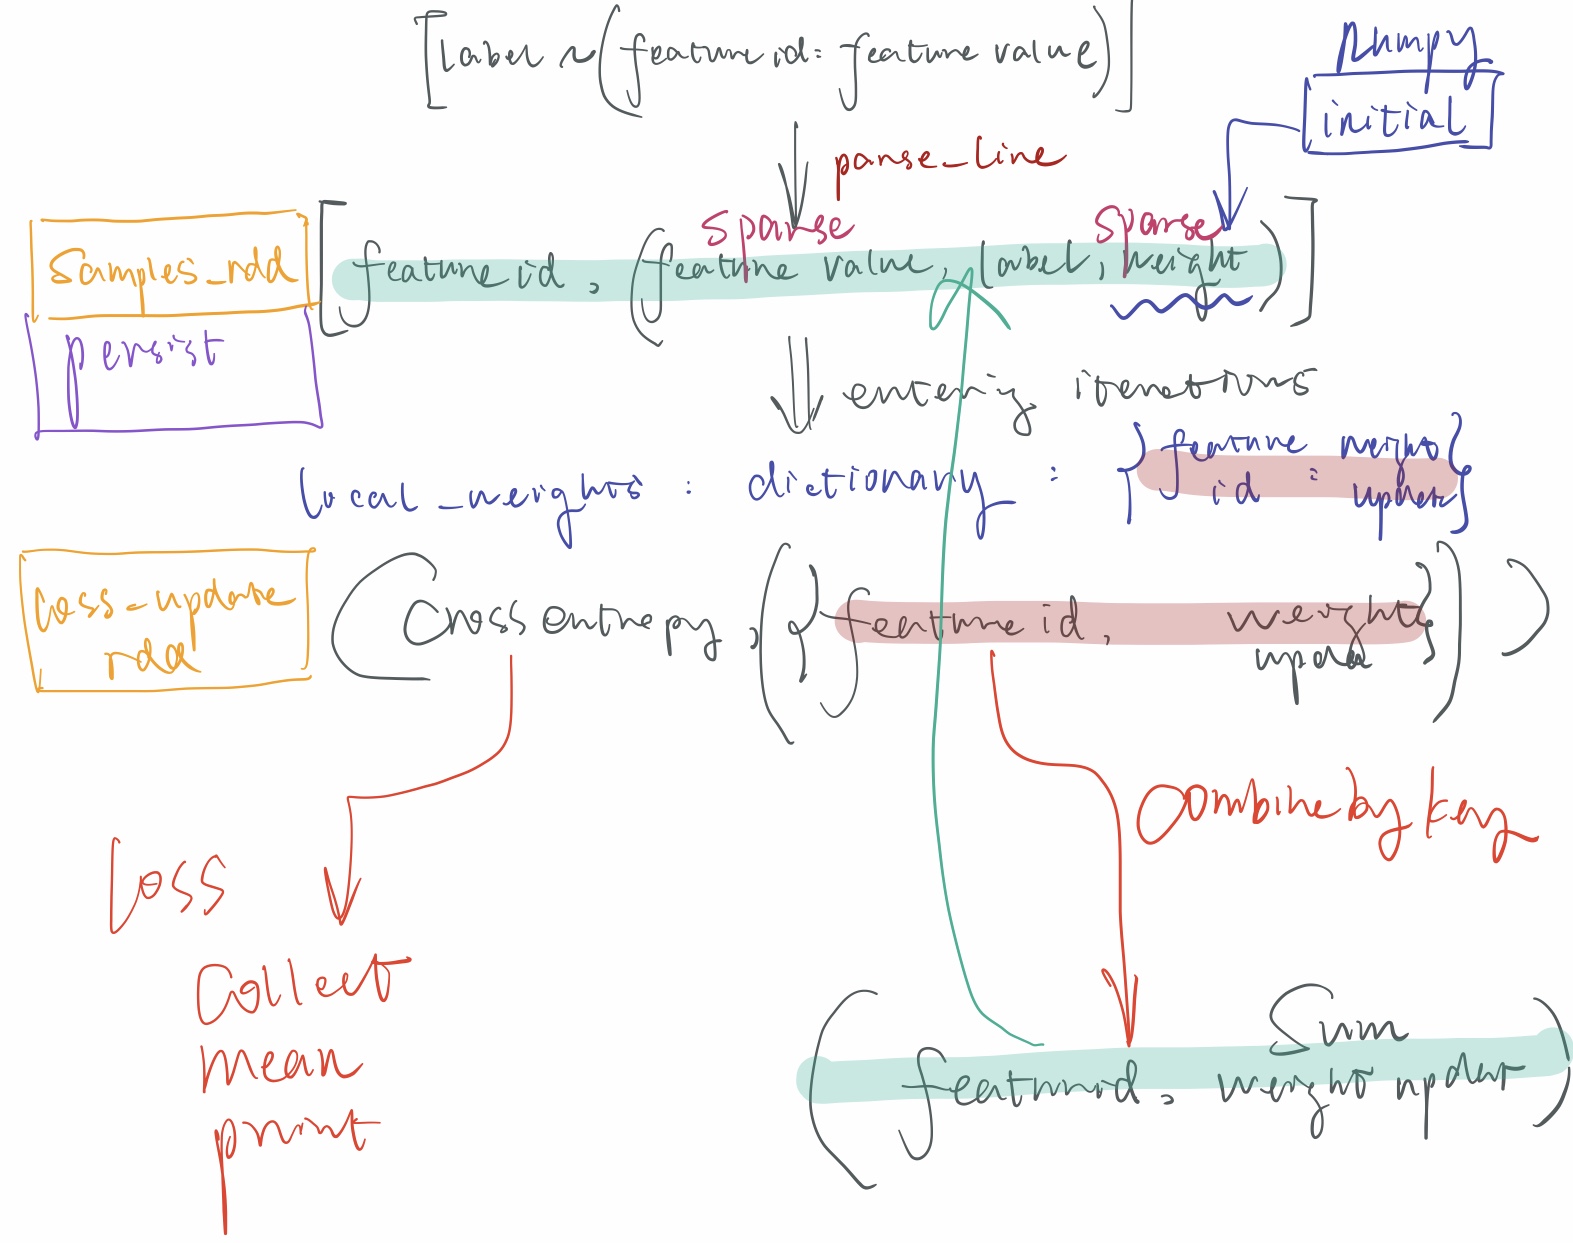 [label ~ (feature id: feature value)]
numpy
initial
parse_line
sparse sparse
samples_rdd [feature id, (feature value, label, weight)]
persist
entering iterations
local_weights : dictionary : {feature id : weight update}
loss-update rdd (Cross entropy, ({feature id, weight update}))
combine by key
loss
collect
mean
print
Sum
(featureid, weight update)